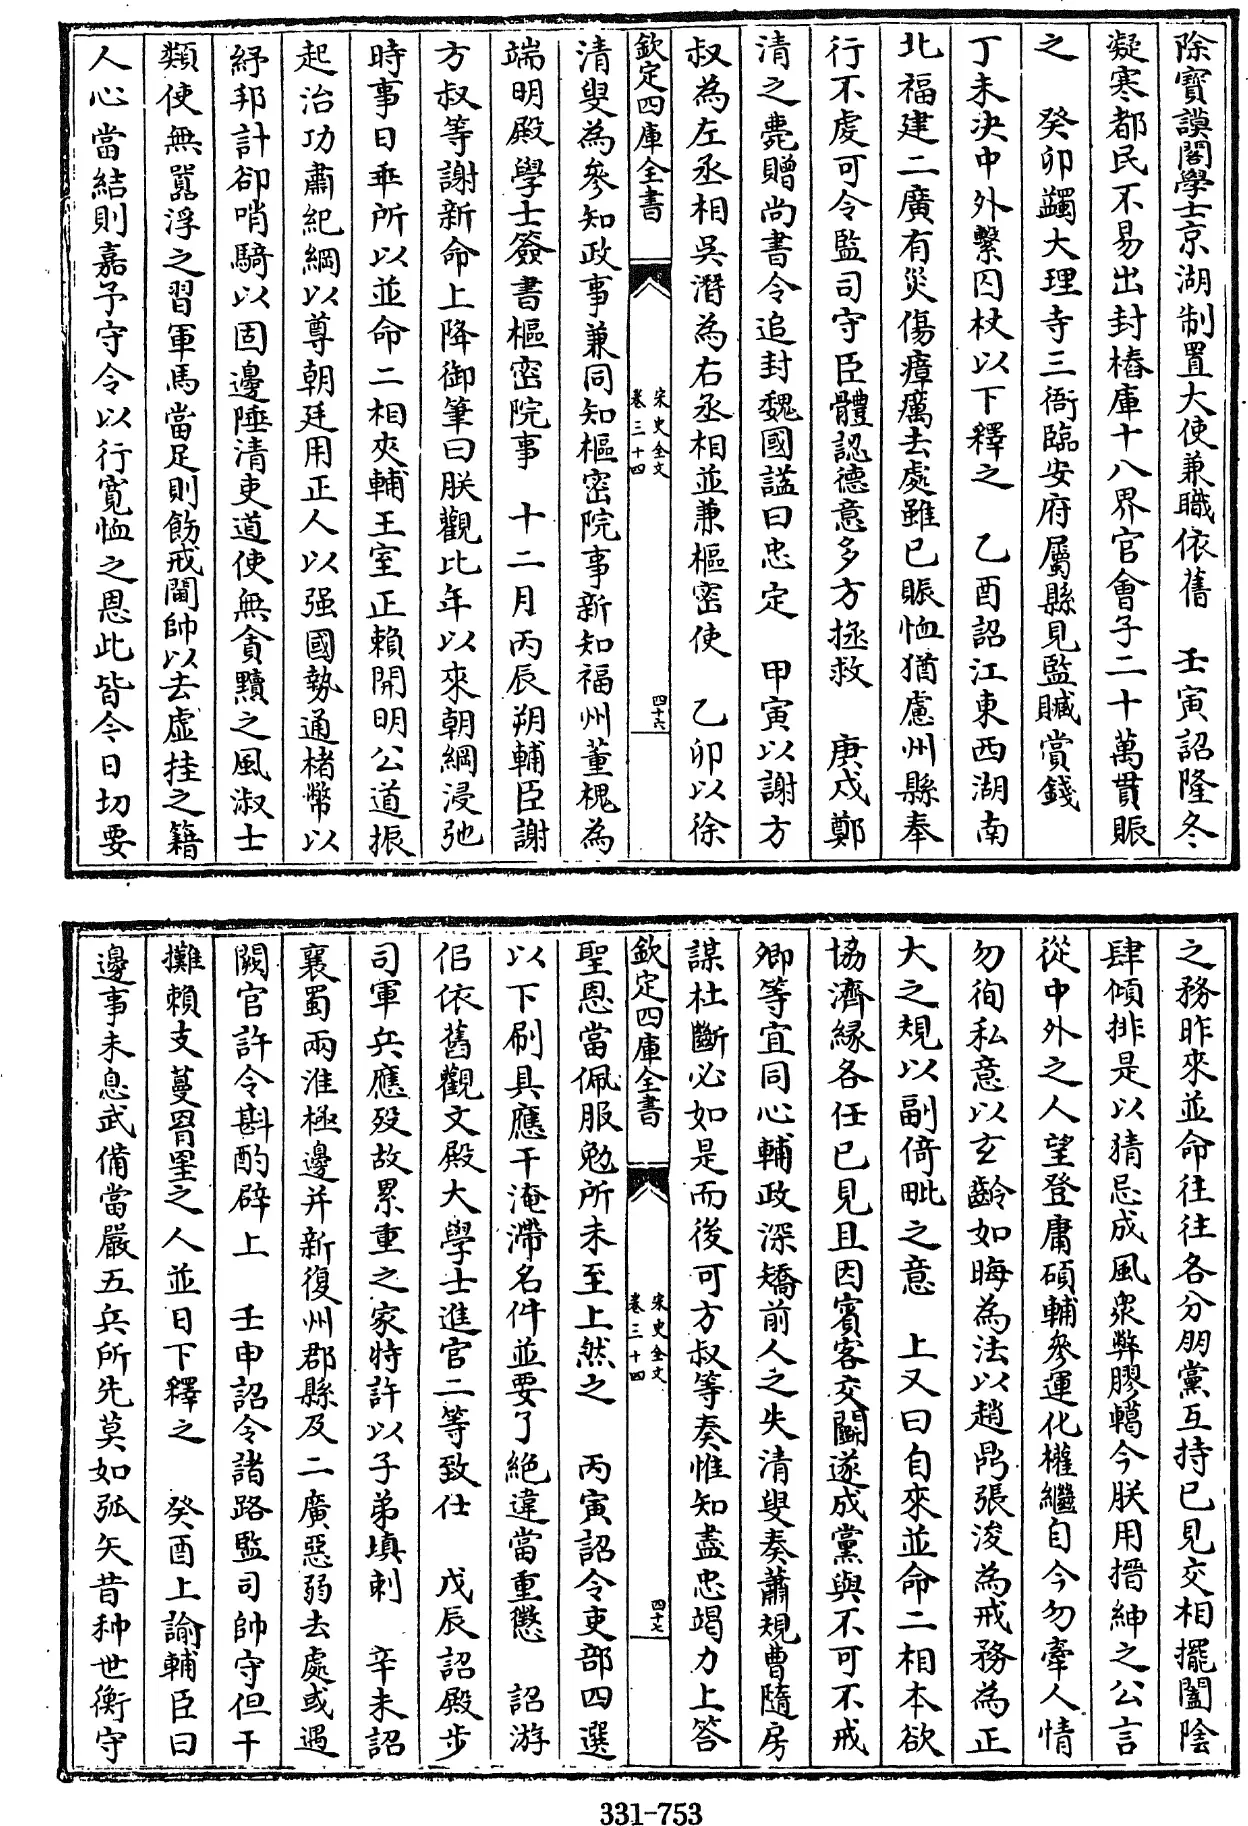 除寶謨閣學士京湖制置大使兼職依舊　壬寅詔隆冬
凝寒都民不易出封樁庫十八界官會子二十萬貫賑
之　癸卯蠲大理寺三衙臨安府屬縣見監贓賞錢
丁未決中外繫囚杖以下釋之　乙酉詔江東西湖南
北福建二廣有災傷瘴癘去處雖已賑恤猶慮州縣奉
行不虔可令監司守臣體認德意多方拯救　庚戌鄭
清之薨贈尚書令追封魏國諡曰忠定　甲寅以謝方
叔為左丞相吳潛為右丞相並兼樞密使　乙卯以徐
欽定四庫全書　宋史全文　卷三十四　四十六
清叟為參知政事兼同知樞密院事新知福州董槐為
端明殿學士簽書樞密院事　十二月丙辰朔輔臣謝
方叔等謝新命上降御筆曰朕觀比年以來朝綱浸弛
時事日乖所以並命二相夾輔王室正賴開明公道振
起治功肅紀綱以尊朝廷用正人以强國勢通楮幣以
紓邦計卻哨騎以固邊陲清吏道使無貪黷之風淑士
類使無囂浮之習軍馬當足則飭戒閫帥以去虛挂之籍
人心當結則嘉予守令以行寬恤之恩此皆今日切要
之務昨來並命往往各分朋黨互持已見交相擺闔陰
肆傾排是以猜忌成風衆弊膠轕今朕用搢紳之公言
從中外之人望登庸碩輔參運化權繼自今勿牽人情
勿徇私意以玄齡如晦為法以趙鼎張浚為戒務為正
大之規以副倚毗之意　上又曰自來並命二相本欲
協濟緣各任已見且因賓客交鬭遂成黨與不可不戒
卿等宜同心輔政深矯前人之失清叟奏蕭規曹隨房
謀杜斷必如是而後可方叔等奏惟知盡忠竭力上答
欽定四庫全書　宋史全文　卷三十四　四十七
聖恩當佩服勉所未至上然之　丙寅詔令吏部四選
以下刷具應干淹滯名件並要了絶違當重懲　詔游
侣依舊觀文殿大學士進官二等致仕　戊辰詔殿步
司軍兵應歿故累重之家特許以子弟填刺　辛未詔
襄蜀兩淮極邊并新復州郡縣及二廣惡弱去處或遇
闕官許令斟酌辟上　壬申詔令諸路監司帥守但干
攤賴支蔓罥罣之人並日下釋之　癸酉上諭輔臣曰
邊事未息武備當嚴五兵所先莫如弧矢昔种世衡守
331-753